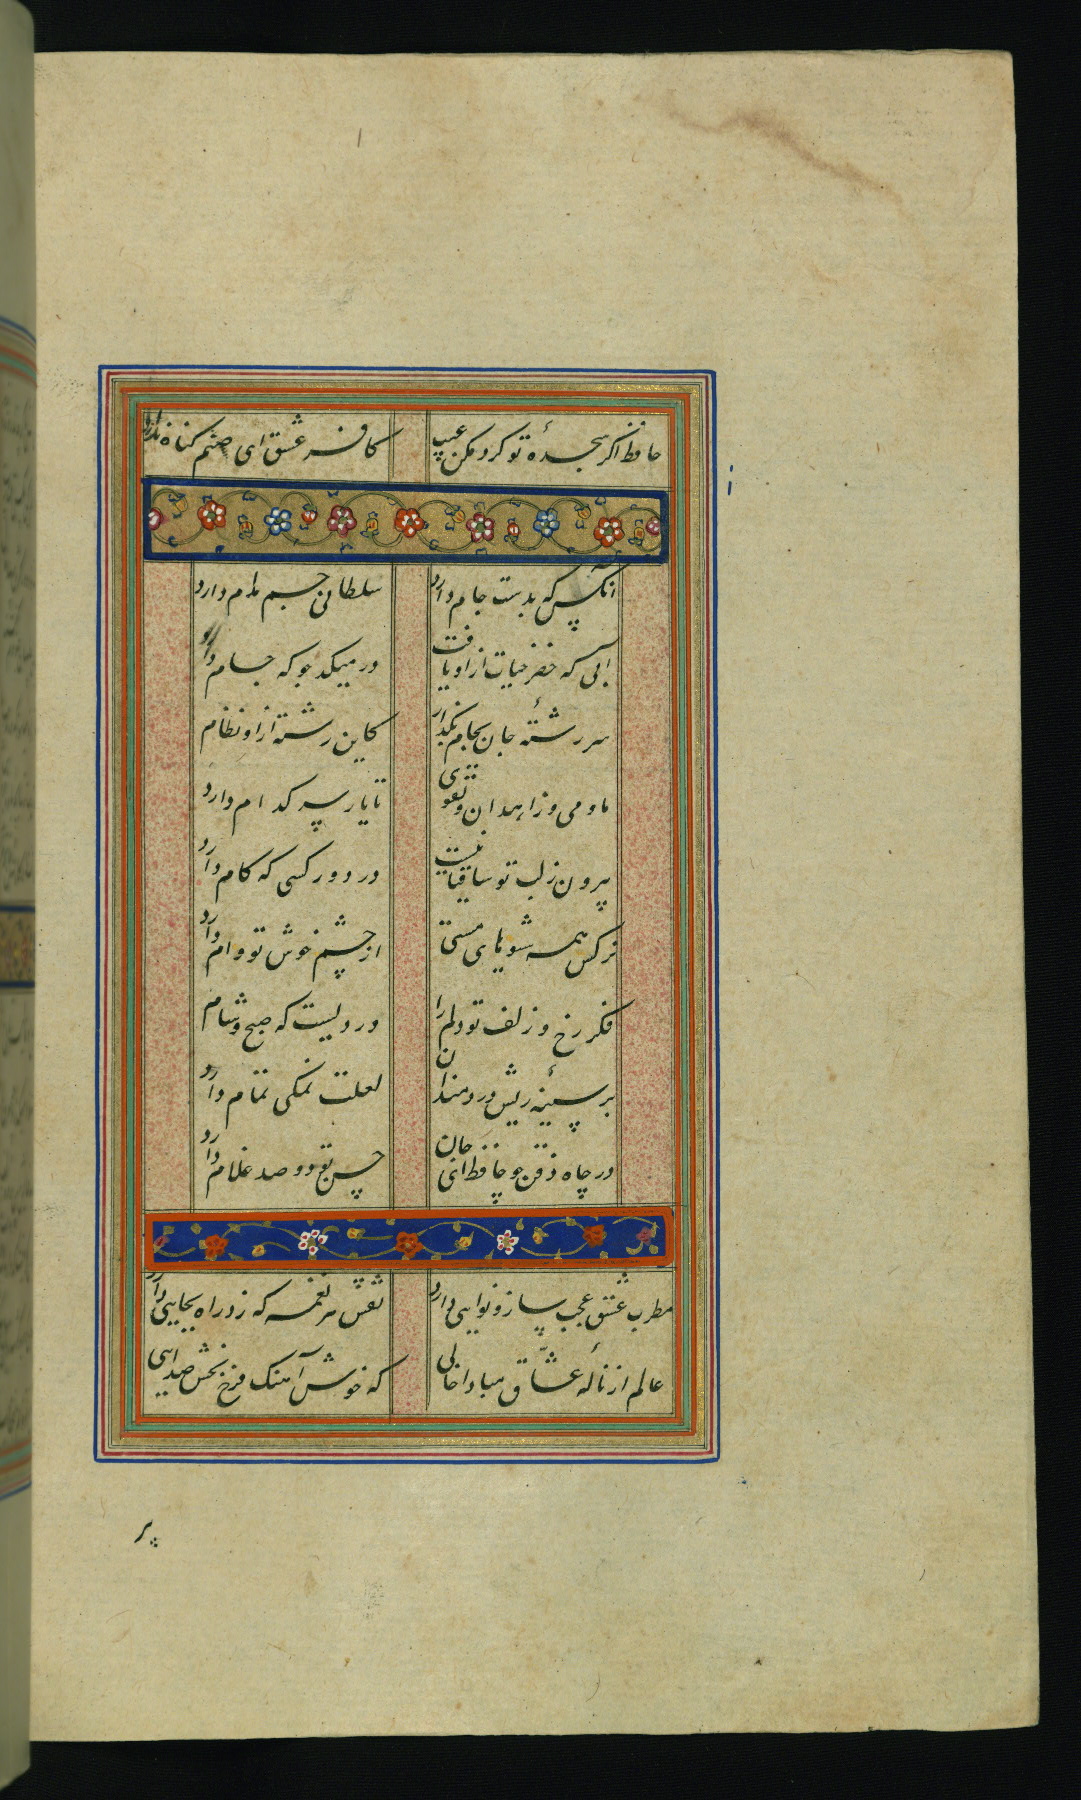 حافظ اگر سجدهٔ تو کرد مکن عیب کافر عشق ای صنم گناه ندارد
آنکس که بدست جام دارد سلطانی جم مدام دارد
آبی که خضر حیات از او یافت در میکده جو که جام دارد
سر رشتهٔ جان بجام بگذار کاین رشته از او نظام
ما و می و زاهدان و تقوی تا یار سر کدام دارد
بیرون ز لب تو ساقیا نیست در دور کسی که کام دارد
نرگس همه شیوهای مستی از چشم خوش تو وام دارد
فکر رخ و زلف تو دلم را وردیست که صبح و شام
بر سینهٔ ریش دردمندان لعلت نمکی تمام دارد
در چاه ذقن چو حافظ ای جان حسن تو دو صد غلام دارد
مطرب عشق عجب ساز و نوایی دارد نقش هر نغمه که زد راه بجایی دارد
عالم از نالهٔ عشاق مبادا خالی که خوش آهنگ فرح بخش صدایی
پر